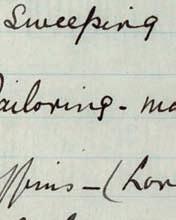 Sweeping
Tailoring - ma
ffins - (Lor